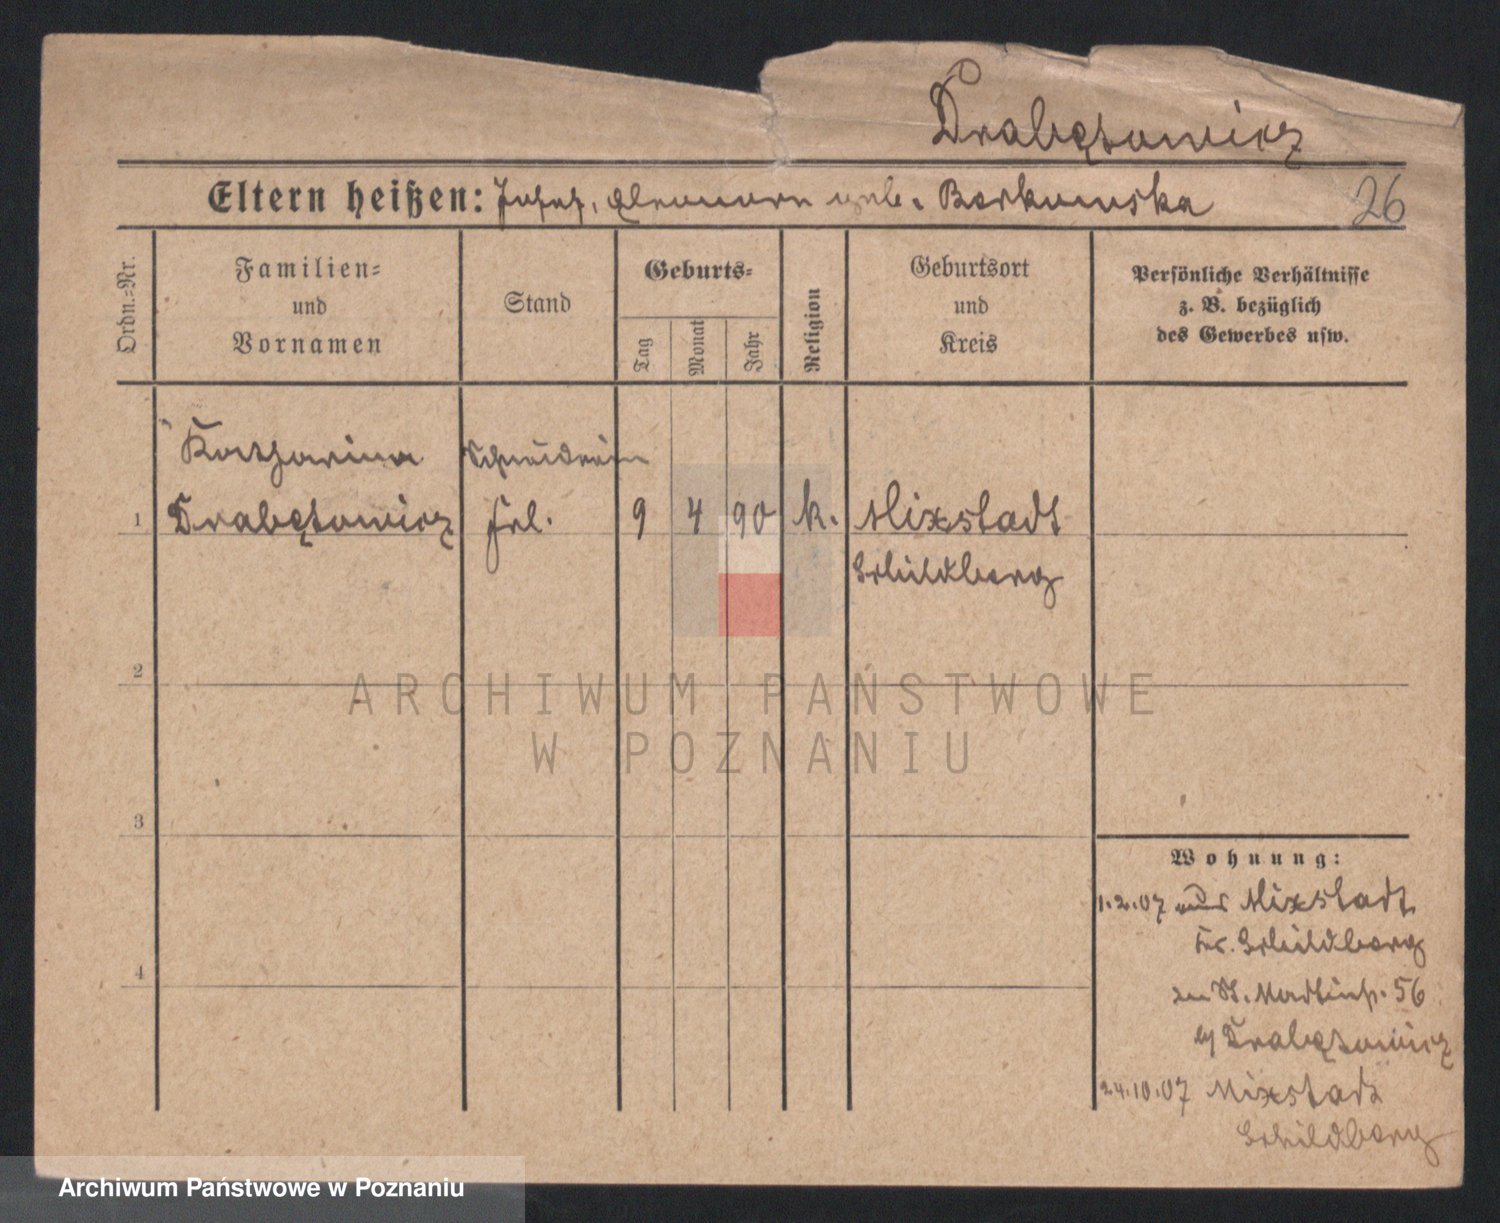 Drabętowicz
Eltern heißen: Josef, Eleonora geb. Borkowska
26
Ordn.=Nr.
Familien=
und
Vornamen
Stand
Geburts=
Tag
Monat
Jahr
Religion
Geburtsort
und
Kreis
Persönliche Verhältnisse
z. B. bezüglich
des Gewerbes usw.
Katharina Schneiderin
1 Drabętowicz Frl. 9 4 90 k. Mixstadt
Schildberg
2
ARCHIWUM PAŃSTWOWE
W POZNANIU
3
Wohnung:
1.2.07 aus Mixstadt
Kr. Schildberg
zu St. Martinstr. 56
b/ Drabętowicz
4
24.10.07 Mixstadt
Schildberg
Archiwum Państwowe w Poznaniu